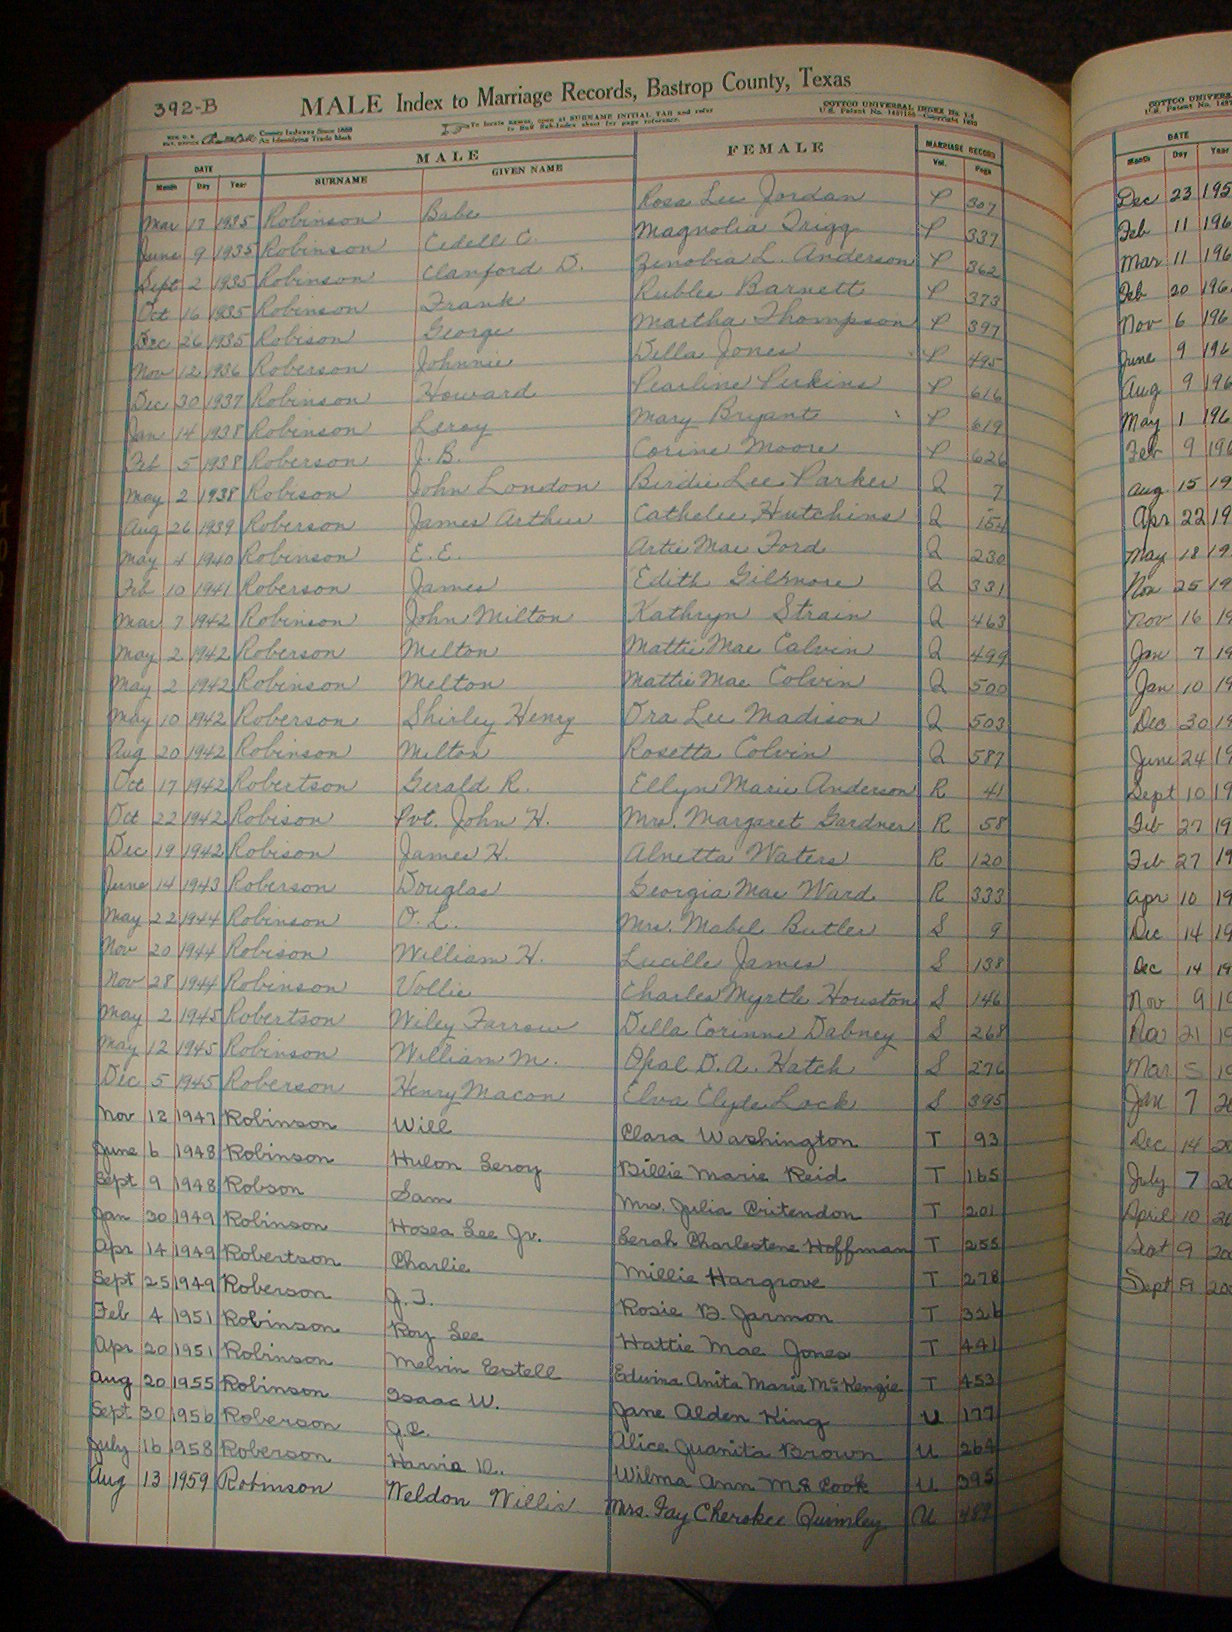 392-B
MALE Index to Marriage Records, Bastrop County, Texas
County Indexes Since 1888
An Identifying Trade Mark
To locate names, open at SURNAME INITIAL TAB and refer
to Sub-Index sheet for page reference.
COTTCO UNIVERSAL INDEX
U.S. Patent No. Copyright
DATE MALE FEMALE MARRIAGE RECORD
Month Day Year SURNAME GIVEN NAME Vol. Page
Mar 17 1935 Robinson Babe Rosa Lee Jordan P 307
June 9 1935 Robinson Cedell C. Magnolia Trigg P 337
Sept 2 1935 Robinson Clanford D. Zenobia L. Anderson P 362
Oct 16 1935 Robinson Frank Rublee Barnett P 373
Dec 26 1935 Robison George Martha Thompson P 397
Nov 12 1936 Roberson Johnnie Della Jones P 495
Dec 30 1937 Robinson Howard Pearline Perkins P 616
Jan 14 1938 Robinson Leroy Mary Bryant P 619
Feb 5 1938 Roberson J. B. Corine Moore P 626
May 2 1938 Robison John London Birdie Lee Parker Q 7
Aug 26 1939 Roberson James Arthur Cathelee Hutchins Q 154
May 4 1940 Robinson E. E. Artie Mae Ford Q 230
Feb 10 1941 Roberson James Edith Gilmore Q 331
Mar 7 1942 Robinson John Milton Kathryn Strain Q 463
May 2 1942 Roberson Milton Mattie Mae Calvin Q 499
May 2 1942 Robinson Melton Mattie Mae Colvin Q 500
May 10 1942 Roberson Shirley Henry Ora Lee Madison Q 503
Aug 20 1942 Robinson Milton Rosetta Colvin Q 587
Oct 17 1942 Robertson Gerald R. Ellyn Marie Anderson R 41
Oct 22 1942 Robison Pvt. John H. Mrs. Margaret Gardner R 58
Dec 19 1942 Robison James H. Alnetta Waters R 120
June 14 1943 Roberson Douglas Georgia Mae Ward R 333
May 22 1944 Robinson O. L. Mrs. Mabel Butler S 9
Nov 20 1944 Robison William H. Lucille James S 138
Nov 28 1944 Robinson Vollie Charles Myrtle Houston S 146
May 2 1945 Robertson Wiley Farrow Della Corinne Dabney S 268
May 12 1945 Robinson William M. Opal D. A. Hatch S 276
Dec 5 1945 Roberson Henry Macon Elva Clyde Lock S 395
Nov 12 1947 Robinson Will Clara Washington T 93
June 6 1948 Robinson Hulon Leroy Billie Marie Reid T 165
Sept 9 1948 Robson Sam Mrs. Julia Critendon T 201
Jan 30 1949 Robinson Hosea Lee Jr. Serah Charlestene Hoffman T 255
Apr 14 1949 Robertson Charlie Millie Hargrove T 278
Sept 25 1949 Roberson J. T. Rosie B. Jarmon T 326
Feb 4 1951 Robinson Roy Lee Hattie Mae Jones T 441
Apr 20 1951 Robinson Melvin Estell Edwina Anita Marie McKenzie T 453
Aug 20 1955 Robinson Isaac W. Jane Alden King U 177
Sept 30 1956 Roberson J.C. Alice Juanita Brown U 264
July 16 1958 Roberson Harvie D. Wilma Ann McCook U 395
Aug 13 1959 Robinson Weldon Willis Mrs. Fay Cherokee Quimley U
COTTCO UNIVERSA
U.S. Patent No.
DATE
Month Day Year
Dec 23 195
Feb 11 196
Mar 11 196
Feb 20 196
Nov 6 196
June 9 196
Aug 9 196
May 1 196
Feb 9 196
Aug 15 19
Apr 22 19
May 18 19
Nov 25 19
Nov 16 19
Jan 7 19
Jan 10 19
Dec 30 19
June 24 19
Sept 10 19
Feb 27 19
Feb 27 19
Apr 10 19
Dec 14 19
Dec 14 19
Nov 9 19
Mar 21 19
Mar 5 19
Jan 7 20
Dec 14 20
July 7 20
April 10 20
Sept 9 200
Sept 9 200